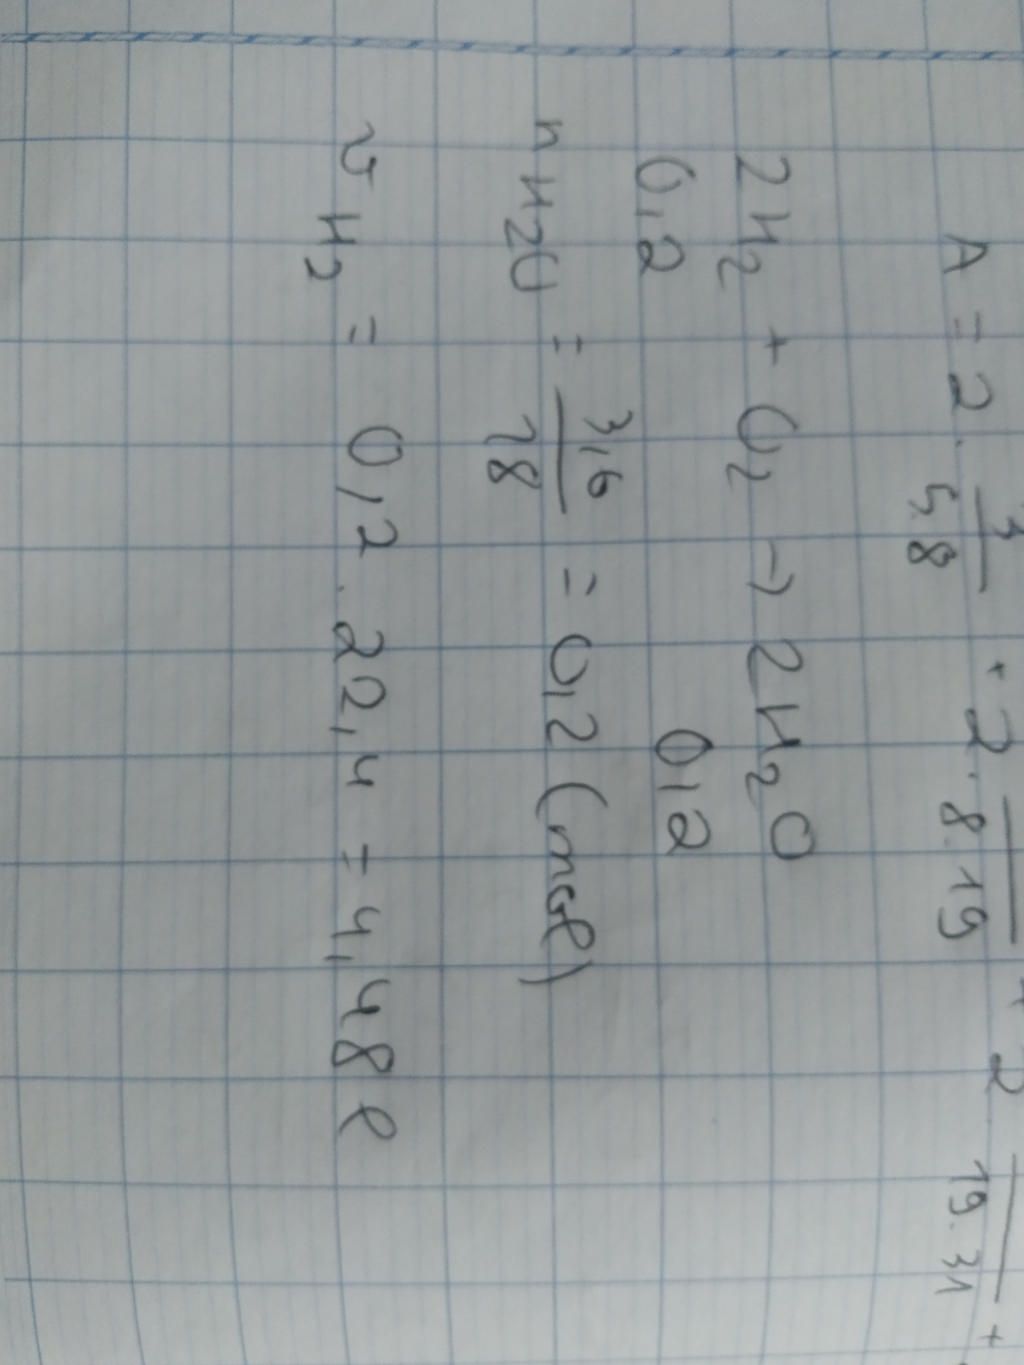 A = 2 . 3/5.8 + 2 . /8.19 + 2 /19.31 +
2H₂ + O₂ → 2H₂O
0,2 0,2
nH₂O = 3,6/18 = 0,2 (mol)
vH₂ = 0,2 . 22,4 = 4,48 l